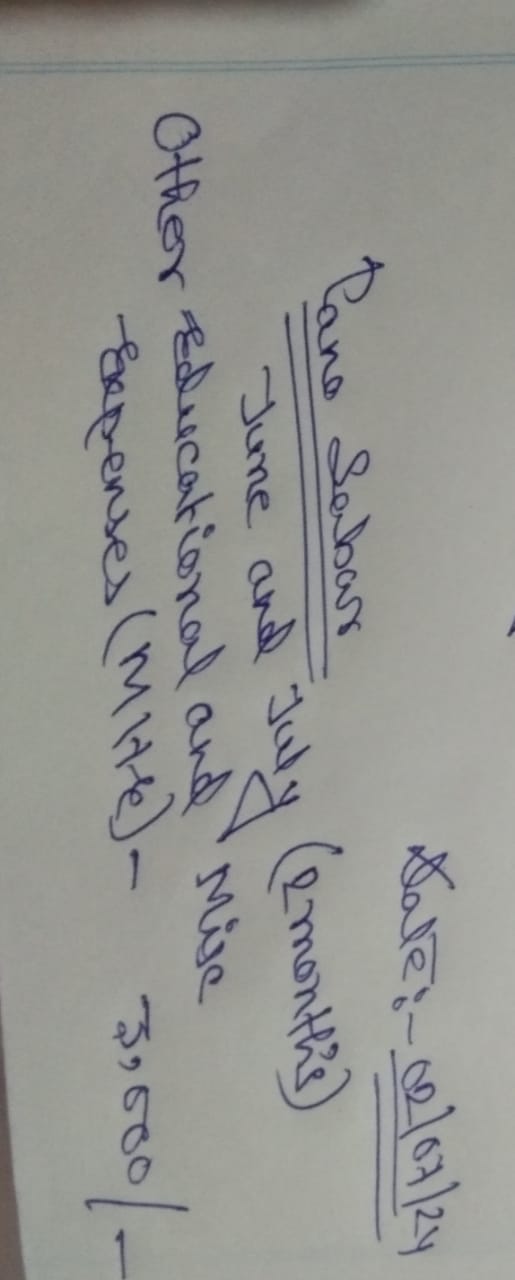 Date:- 02/07/24
Pano Sabar
June and July (2 month's)
Other Educational and Misc
Expenses (MHE) - 3,000/-